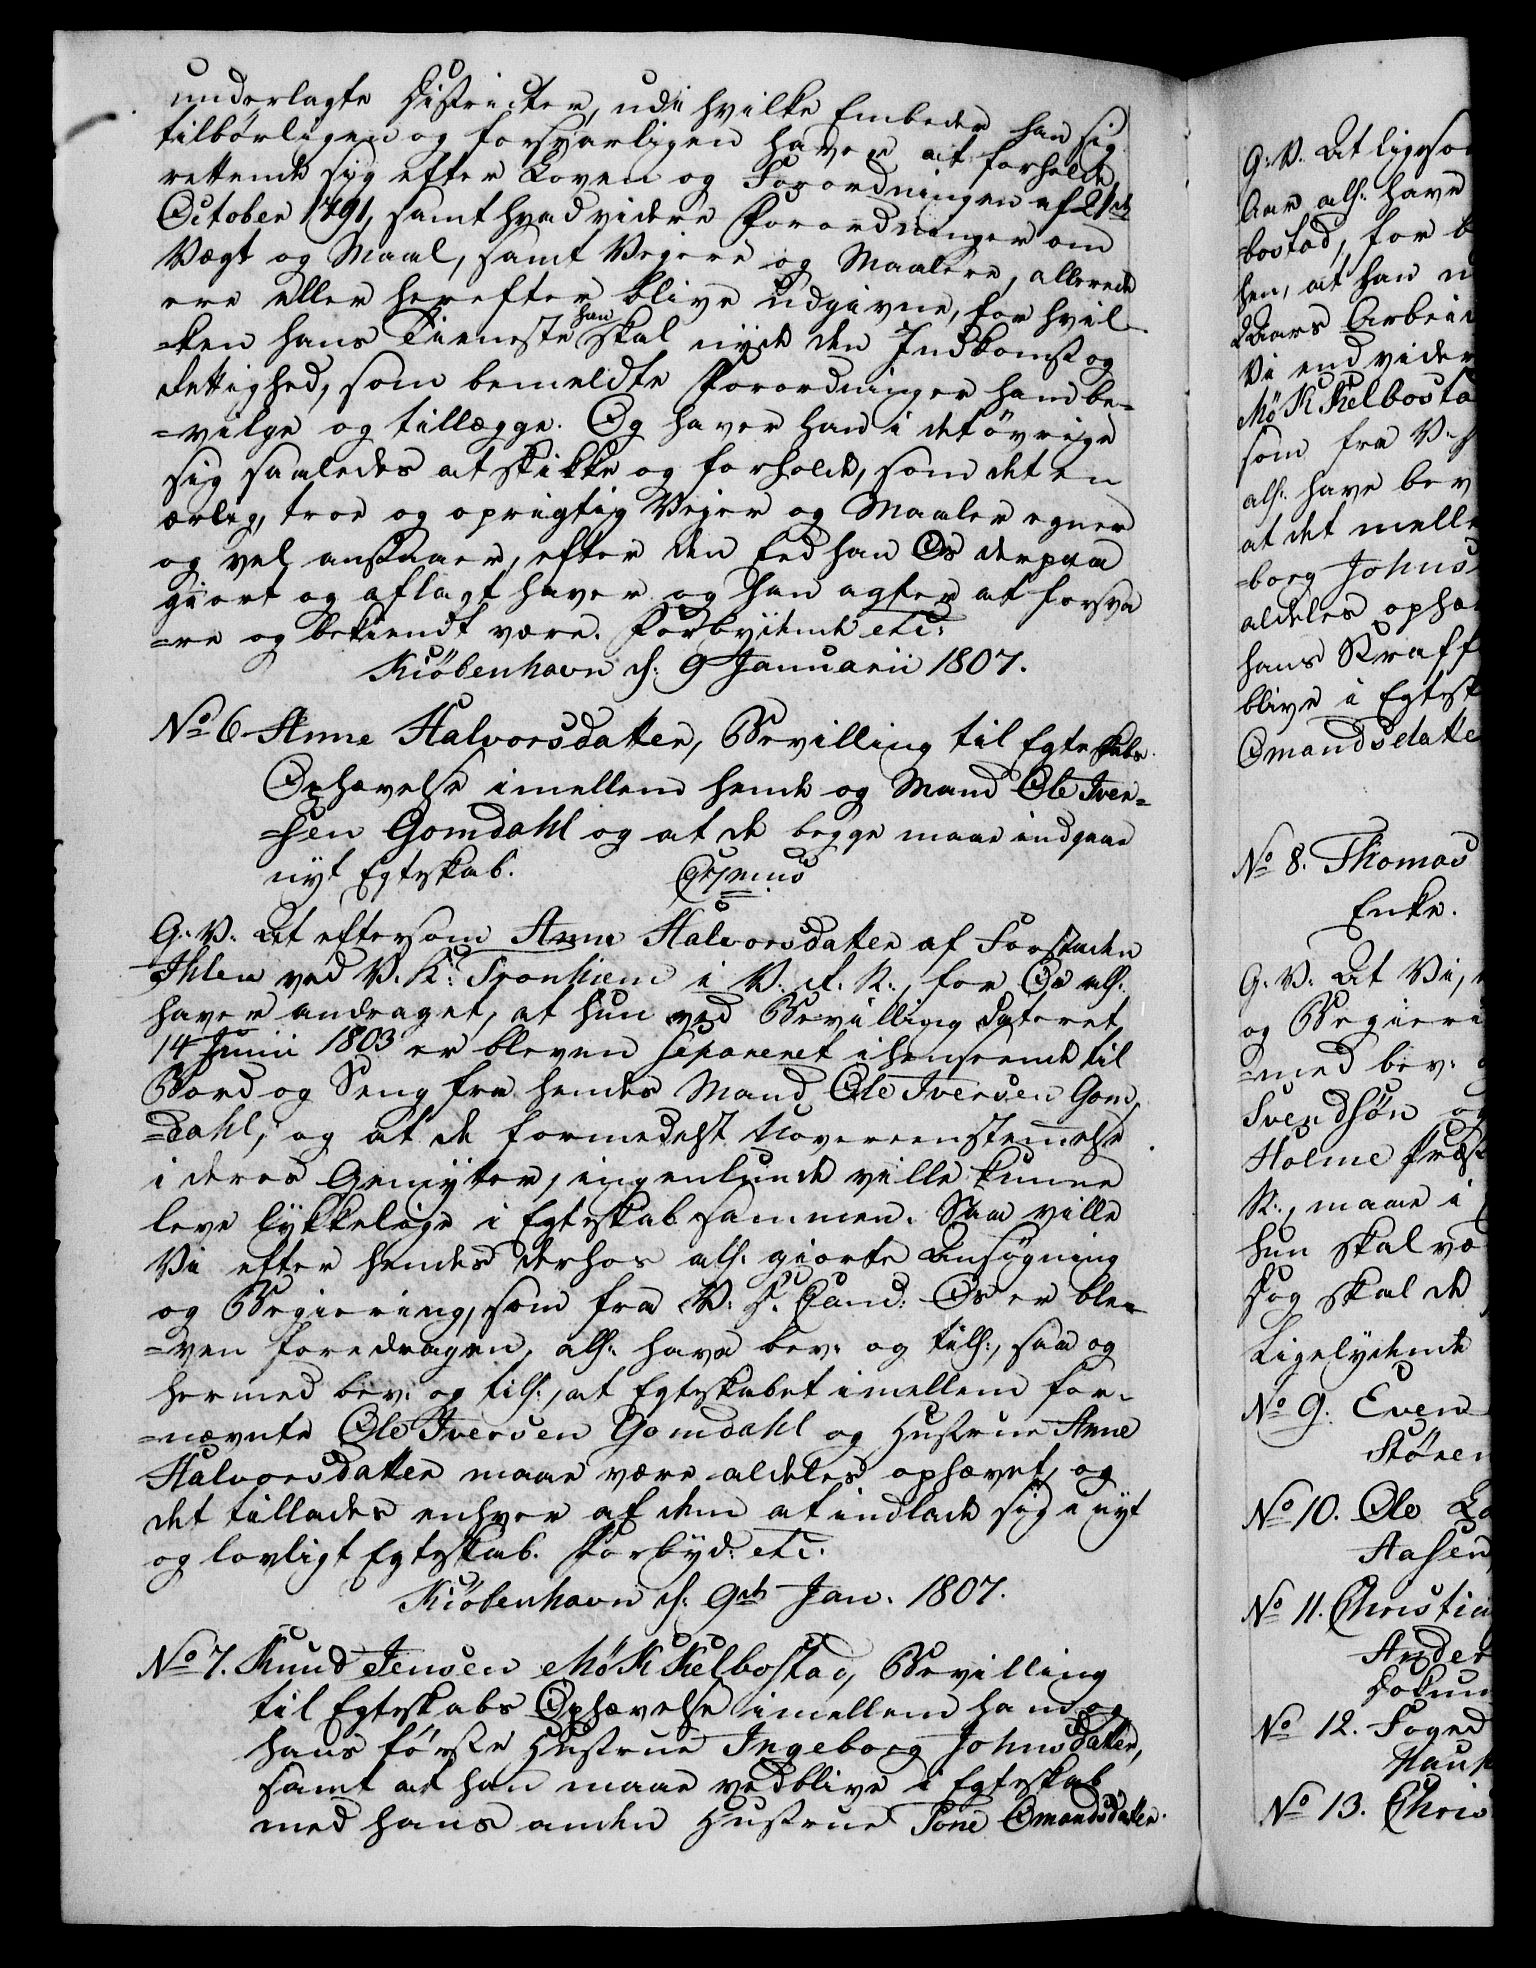 underlagte Districter, udi hvilke Embeder han sig
tilbørligen og forsvarligen haver at forholde,
rettende sig efter Loven og Forordningen af 21de
October 1791, samt hvad videre Forordninger om
Vægt og Maal, samt Vejere og Maalere, allerede
ere eller herefter blive udgivne, for hvil-
=ken hans Tieneste han skal nyde den Indkomst og
Rettighed, som bemeldte Forordninger ham be=
=vilge og tillægge. Og haver han i det øvrige
sig saaledes at skikke og forholde, som det en
ærlig, troe og oprigtig Vejer og Maaler egner
og vel anstaaer, efter den Eed han Os derpaa
giort og aflagt haver og han agter at forsva
=re og bekiendt være. Forbydende etc:
Kiöbenhavn d: 9 Januarii 1807.
No 6 Anne Halvorsdatter, Bevilling til Egteskabs
Ophævelse imellem hende og Mand Ole Iver=
=sen Gomdahl og at de begge maae indgaae
nyt Egteskab.
G: V: At eftersom Anne Halvorsdatter af Forstaden
Ihlen ved V. K: Tronhiem i V. R. N., for Os alh:
haver andraget, at hun ved Bevilling dateret
14 Junii 1803 er bleven separeret i henseende til
Bord og Seng fra hendes Mand Ole Iversen Gom,
=dahl, og at de formedelst Uovereenstemmelse
i deres Gemytter, ingenlunde ville kunne
leve lykkelige i Egteskab sammen. Saa ville
Vi efter hendes derhos alh: giorte Ansøgning
og Begiering, som fra V: D. Cand: Os er ble-
=ven foredragen, alh: have bev: og tilh:, saa og
hermed bev: og tilh:, at Egteskabet imellem for-
=nævnte Ole Iversen Gomdahl og Hustrue Anne
Halvorsdatter maae være aldeles ophævet, og
det tillades enhver af dem at indlade sig i nyt
og lovligt Egteskab. Forbyd: etc.
Kiöbenhavn d: 9de Jan. 1807.
No 7. Knud Jensen Møkkelbostad, Bevilling
til Egteskabs Ophævelse imellem ham og
hans første Hustrue Ingeborg Johnsdatter,
samt at han maae vedblive i Egteskab
med hans anden Hustrue Tone Omandsdatter.
G: V. At ligeso
Aar alh: have
=bostad, for
hen, at han
Aars Arbeid
Vi end vider
Møkkelbosta
som fra V.
alh: have bev
at det melle
=borg Johns
aldeles ophæ
hans Kraft
blive i Egtesk
Omandsdatte
No 8. Thomas
Enke.
G. V. At Vi,
og Begieri
=med bev:
Svendsøn og
Holme Præst
N., maae i
hun skal væ
Dog skal de
Ligelydende
No 9. Even
Stören
No 10. Ole
Aasen
No 11. Christia
Ander
No 12. Foged
No 13. Chris